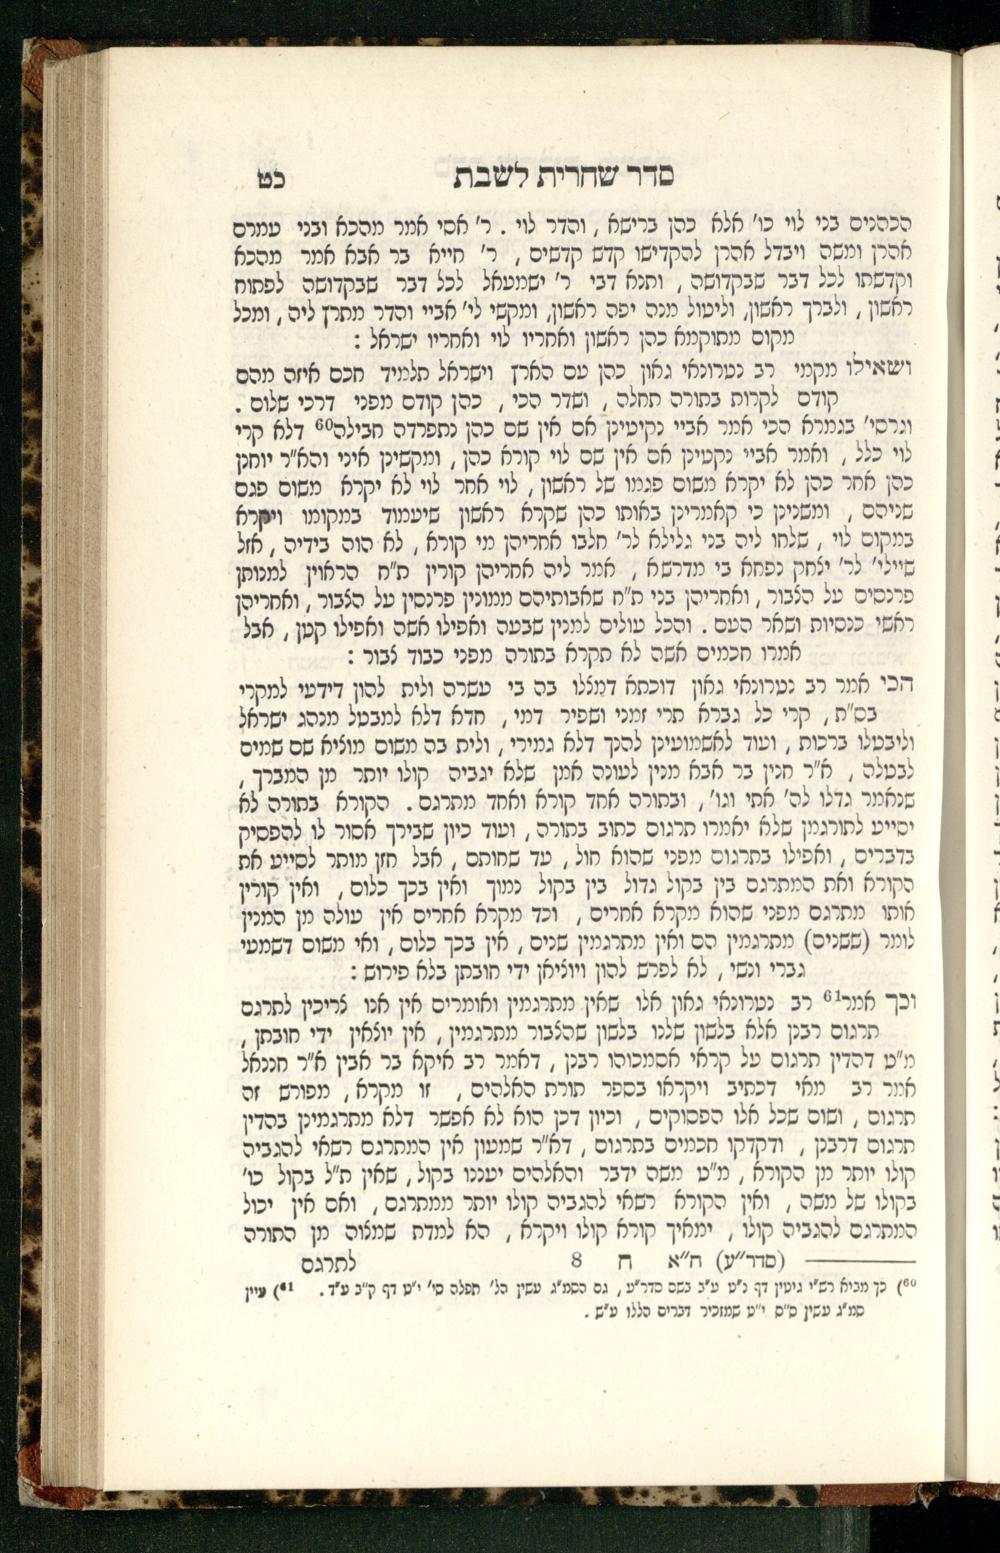 סדר שחרית לשבת
כט
הכהנים בני לוי כו' אלא כהן ברישא, והדר לוי. ר' אסי אמר מהכא ובני עמרם
אהרן ומשה ויבדל אהרן להקדישו קדש קדשים, ר' חייא בר אבא אמר מהכא
וקדשתו לכל דבר שבקדושה, ותנא דבי ר' ישמעאל לכל דבר שבקדושה לפתוח
ראשון, ולברך ראשון, וליטול מנה יפה ראשון, ומקשי לי' אביי והדר מתרץ ליה, ומכל
מקום מתוקמא כהן ראשון ואחריו לוי ואחריו ישראל:
ושאילו מקמי רב נטרונאי גאון כהן עם הארץ וישראל תלמיד חכם איזה מהם
קודם לקרות בתורה תחלה, ושדר הכי, כהן קודם מפני דרכי שלום.
וגרסי' בגמרא הכי אמר אביי נקיטינן אם אין שם כהן נתפרדה חבילה60 דלא קרי
לוי כלל, ואמר אביי נקטינן אם אין שם לוי קורא כהן, ומקשינן איני והא"ר יוחנן
כהן אחר כהן לא יקרא משום פגמו של ראשון, לוי אחר לוי לא יקרא משום פגם
שניהם, ומשנינן כי קאמרינן באותו כהן שקרא ראשון שיעמוד במקומו ויקרא
במקום לוי, שלחו ליה בני גלילא לר' חלבו אחריהן מי קורא, לא הוה בידיה, אזל
שיילי' לר' יצחק נפחא בי מדרשא, אמר ליה אחריהן קורין ת"ח הראוין למנותן
פרנסים על הצבור, ואחריהן בני ת"ח שאבותיהם ממונין פרנסין על הצבור, ואחריהן
ראשי כנסיות ושאר העם. והכל עולים למנין שבעה ואפילו אשה ואפילו קטן, אבל
אמרו חכמים אשה לא תקרא בתורה מפני כבוד צבור:
הכי אמר רב נטרונאי גאון דוכתא דמצלו בה בי עשרה ולית להון דידעי למקרי
בס"ת, קרי כל גברא תרי זמני ושפיר דמי, חדא דלא למבטל מנהג ישראל
וליבטלו ברכות, ועוד לאשמועינן להנך דלא גמירי, ולית בה משום מוציא שם שמים
לבטלה, א"ר חנין בר אבא מנין לעונה אמן שלא יגביה קולו יותר מן המברך,
שנאמר גדלו לה' אתי וגו', ובתורה אחד קורא ואחד מתרגם. הקורא בתורה לא
יסייע לתורגמן שלא יאמרו תרגום כתוב בתורה, ועוד כיון שבירך אסור לו להפסיק
בדברים, ואפילו בתרגום מפני שהוא חול, עד שחותם, אבל חזן מותר לסייע את
הקורא ואת המתרגם בין בקול גדול בין בקול נמוך ואין בכך כלום, ואין קורין
אותו מתרגם מפני שהוא מקרא אחרים, וכד מקרא אחרים אין עולה מן המנין
לומר (ששנים) מתרגמין הם ואין מתרגמין שנים, אין בכך כלום, ואי משום דשמעי
גברי ונשי, לא לפרש להון ויוציאן ידי חובתן בלא פירוש:
וכך אמר61 רב נטרונאי גאון אלו שאין מתרגמין ואומרים אין אנו צריכין לתרגם
תרגום רבנן אלא בלשון שלנו בלשון שהצבור מתרגמין, אין יוצאין ידי חובתן,
מ"ט דהדין תרגום על קראי אסמכוהו רבנן, דאמר רב איקא בר אבין א"ר חננאל
אמר רב מאי דכתיב ויקראו בספר תורת האלהים, זו מקרא, מפורש זה
תרגום, ושום שכל אלו הפסוקים, וכיון דכן הוא לא אפשר דלא מתרגמינן בהדין
תרגום דרבנן, ודקדקו חכמים בתרגום, דא"ר שמעון אין המתרגם רשאי להגביה
קולו יותר מן הקורא, מ"ט משה ידבר והאלהים יעננו בקול, שאין ת"ל בקול כו'
בקולו של משה, ואין הקורא רשאי להגביה קולו יותר ממתרגם, ואם אין יכול
המתרגם להגביה קולו, ימאיך קורא קולו ויקרא, הא למדת שמצוה מן התורה
(סדר"ע) ח"א ח 8 לתרגם
60) כך מביא רש"י גיטין דף נ"ט ע"ב בשם סדר"ע, גם הסמ"ג עשין הל' תפלה סי' י"ט דף ק"ב ע"ד. 61) עיין
סמ"ג עשין ס"ס י"ט שמזכיר דברים הללו ע"ש.